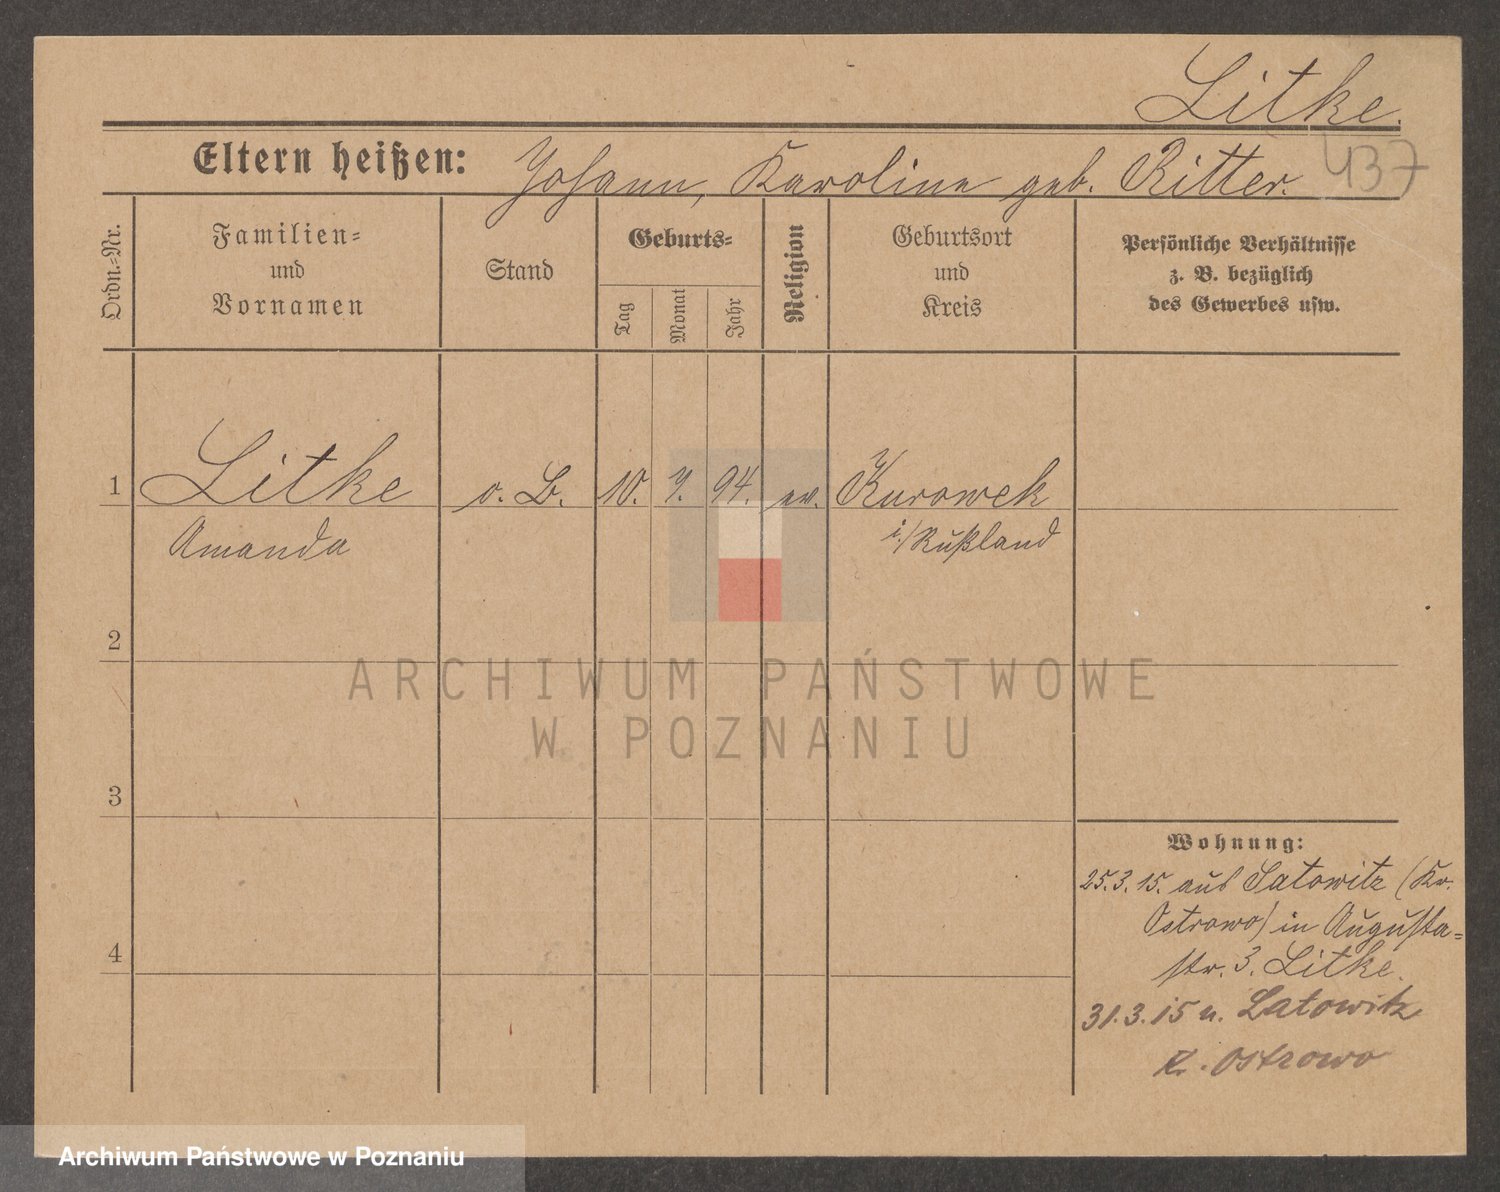 Litke.
437
Eltern heißen: Johann, Karoline geb. Ritter.
Ordn.=Nr.
Familien=
und
Vornamen
Stand
Geburts=
Tag
Monat
Jahr
Religion
Geburtsort
und
Kreis
Persönliche Verhältnisse
z. B. bezüglich
des Gewerbes usw.
1 Litke o. B. 10. 7. 94. ev. Kurowek
Amanda i./Rußland
2
ARCHIWUM PAŃSTWOWE
W POZNANIU
3
Wohnung:
25.3.15. aus Latowitz (Kr.
Ostrowo) in Augusta=
4
str. 3. Litke.
31.3.15 n. Latowitz
K. Ostrowo
Archiwum Państwowe w Poznaniu